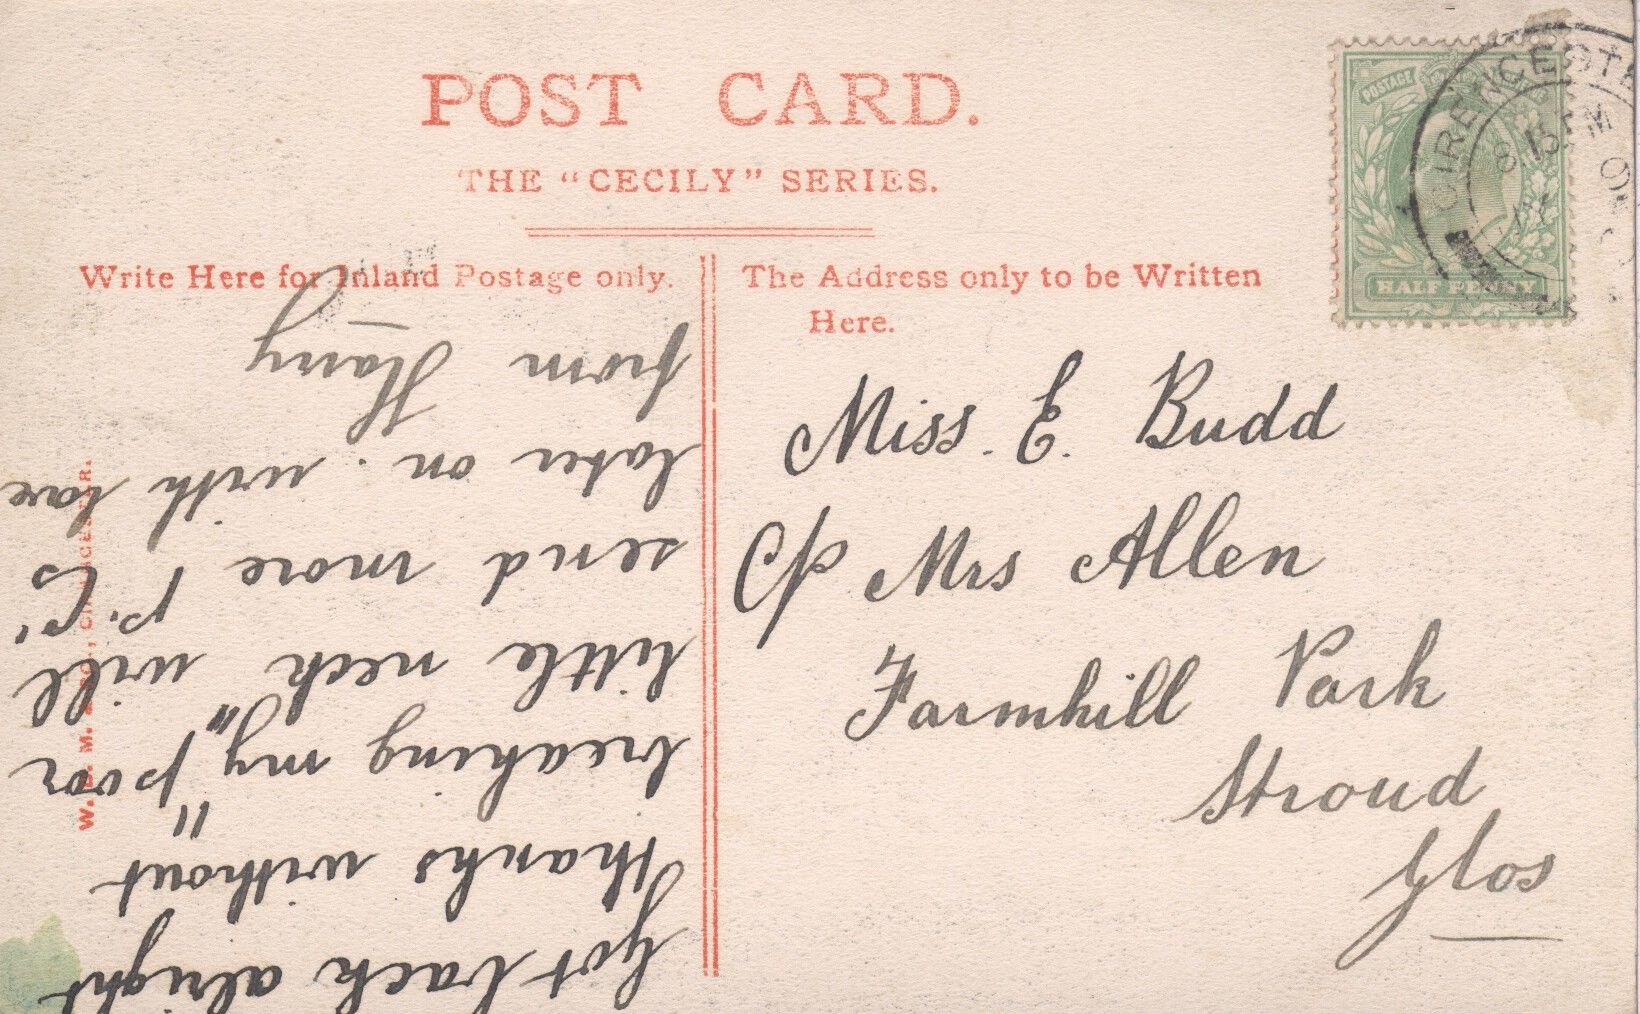 POST CARD.
THE "CECILY" SERIES.
Write Here for Inland Postage only.
The Address only to be Written
Here.
POSTAGE
HALF PENNY
CIRENCESTE
Miss. E. Budd
C/o Mrs Allen
Farmhill Park
Stroud
Glos
Got back alright
thanks without
breaking my "poor
little neck" will
send more p.c's
later on. with love
from Harry
CIRENCESTER.